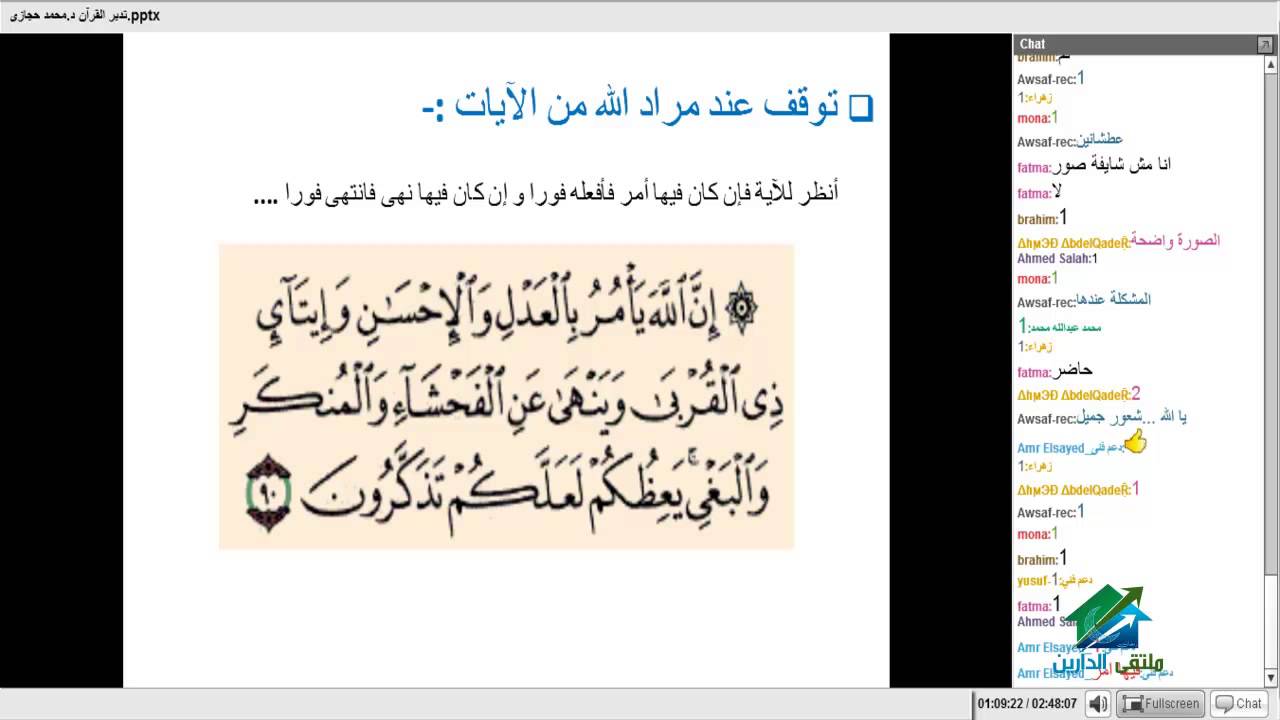 تدبر القرآن د.محمد حجازى.pptx
توقف عند مراد الله من الآيات :-
أنظر للآية فإن كان فيها أمر فأفعله فورا و إن كان فيها نهى فانتهى فورا ....
۞ إِنَّ ٱللَّهَ يَأْمُرُ بِٱلْعَدْلِ وَٱلْإِحْسَـٰنِ وَإِيتَآئِ
ذِى ٱلْقُرْبَىٰ وَيَنْهَىٰ عَنِ ٱلْفَحْشَآءِ وَٱلْمُنكَرِ
وَٱلْبَغْىِ ۚ يَعِظُكُمْ لَعَلَّكُمْ تَذَكَّرُونَ ٩٠
Chat
brahim:
Awsaf-rec:1
زهراء:1
mona:1
Awsaf-rec:عطشانين
fatma:انا مش شايفة صور
fatma:لا
brahim:1
ΔhϻЭÐ ΔbdelQadeȒ:الصورة واضحة
Ahmed Salah:1
mona:1
Awsaf-rec:المشكلة عندها
محمد عبدالله محمد:1
زهراء:1
fatma:حاضر
ΔhϻЭÐ ΔbdelQadeȒ:2
Awsaf-rec:يا الله ...شعور جميل
Amr Elsayed_دعم فنى:
زهراء:1
ΔhϻЭÐ ΔbdelQadeȒ:1
Awsaf-rec:1
mona:1
brahim:1
yusuf-دعم فني:1
fatma:1
Ahmed Sal
Amr Elsayed_
Amr Elsayed_دعم فنى:فيها أمر
ملتقى الدارين
01:09:22 / 02:48:07
Fullscreen
Chat